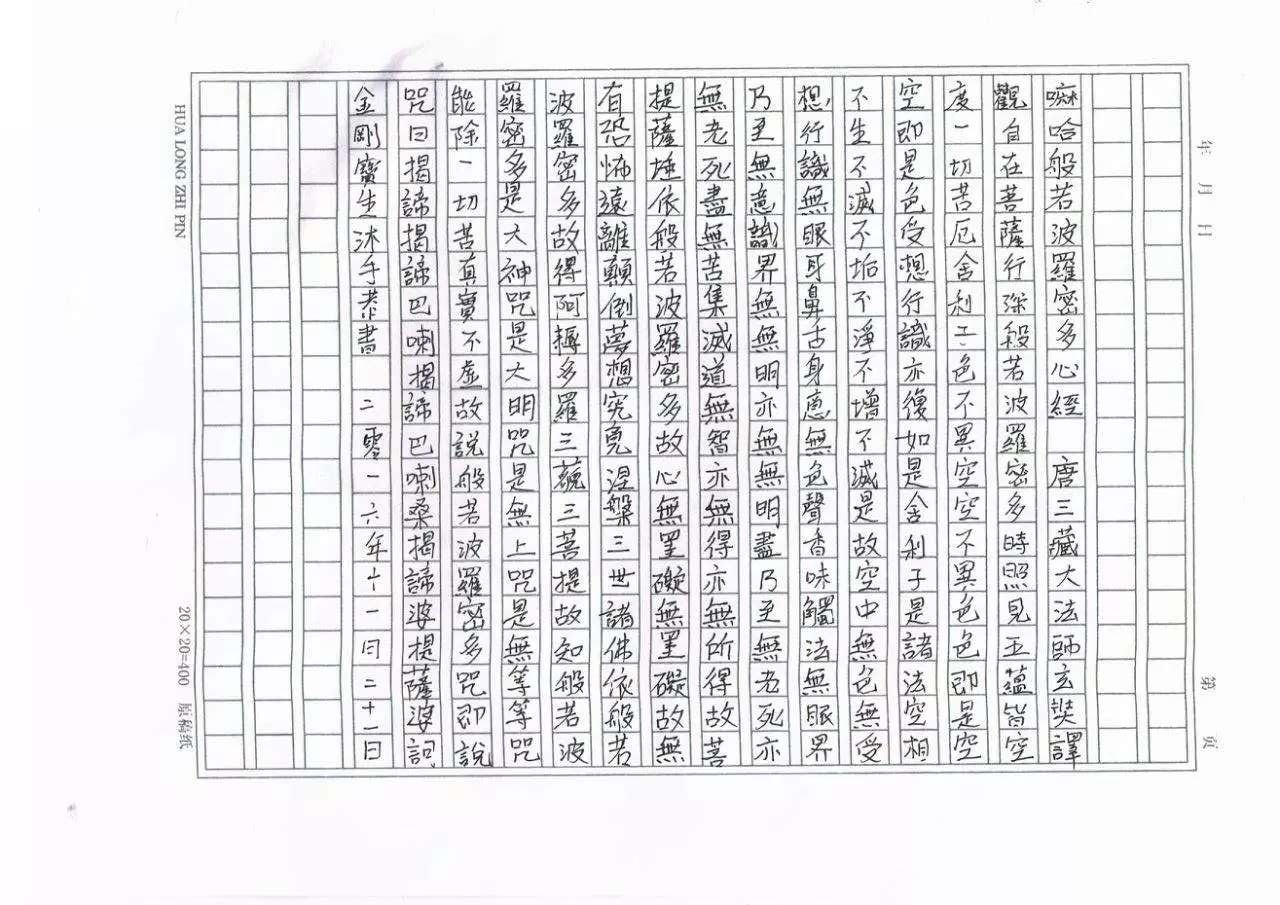 年 月 日
第 页
嘛哈般若波羅密多心經 唐三藏大法師玄奘譯
觀自在菩薩行深般若波羅密多時照見五蘊皆空
度一切苦厄舍利子色不異空空不異色色即是空
空即是色受想行識亦復如是舍利子是諸法空相
不生不滅不垢不淨不增不滅是故空中無色無受
想行識無眼耳鼻舌身意無色聲香味觸法無眼界
乃至無意識界無無明亦無無明盡乃至無老死亦
無老死盡無苦集滅道無智亦無得亦無所得故菩
提薩埵依般若波羅密多故心無罣礙無罣礙故無
有恐怖遠離顛倒夢想究竟涅槃三世諸佛依般若
波羅密多故得阿耨多羅三藐三菩提故知般若波
羅密多是大神咒是大明咒是無上咒是無等等咒
能除一切苦真實不虛故說般若波羅密多咒即說
咒曰揭諦揭諦巴喇揭諦巴喇桑揭諦婆提薩婆訶
金剛寶生沐手恭書 二零一六年十一月二十一日
HUA LONG ZHI PIN
20×20=400 原稿紙